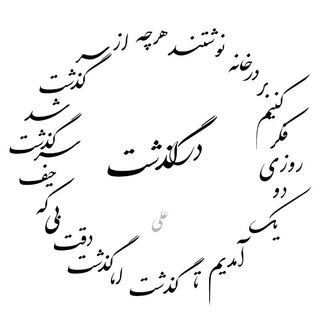 هرچه از سر گذشت شد سرگذشت
حیف که بی دقت گذشت اما گذشت
تا آمدیم یک دو روزی فکر کنیم
بر در خانه نوشتند
درگذشت
علی